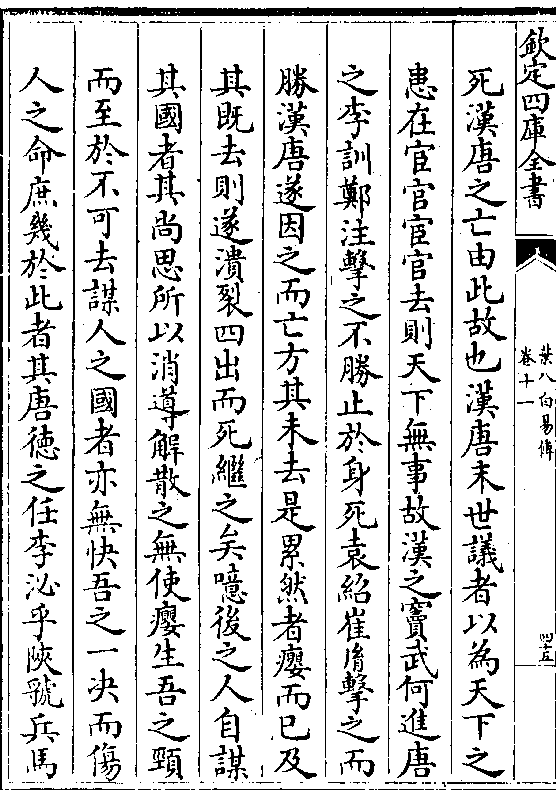 欽定四庫全書
葉八白易傳
卷十一
四十五
死漢唐之亡由此故也漢唐末世議者以為天下之
患在宦官宦官去則天下無事故漢之竇武何進唐
之李訓鄭注擊之不勝止於身死袁紹崔胤擊之而
勝漢唐遂因之而亡方其未去是累然者癭而已及
其既去則遂潰裂四出而死繼之矣噫後之人自謀
其國者其尚思所以消導解散之無使癭生吾之頸
而至於不可去謀人之國者亦無快吾之一决而傷
人之命庶幾於此者其唐徳之任李泌乎陜虢兵馬